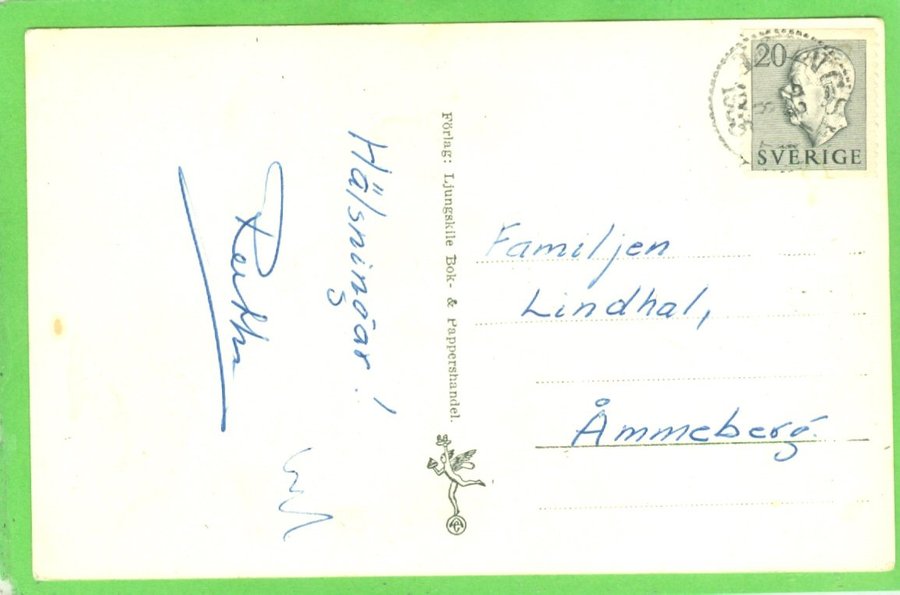 Hälsningar!
Förlag: Ljungskile Bok- & Pappershandel.
20
SVERIGE
Familjen
Lindhal,
Åmmeberg.